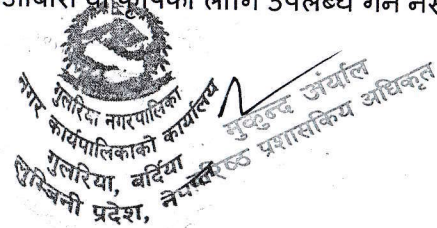 आवास वा कृषिका लागि उपलब्ध गर्न
गुलरिया नगरपालिका
नगर कार्यपालिकाको कार्यालय
गुलरिया, बर्दिया
लुम्बिनी प्रदेश, नेपाल
मुकुन्द अर्याल
वरिष्ठ प्रशासकिय अधिकृत